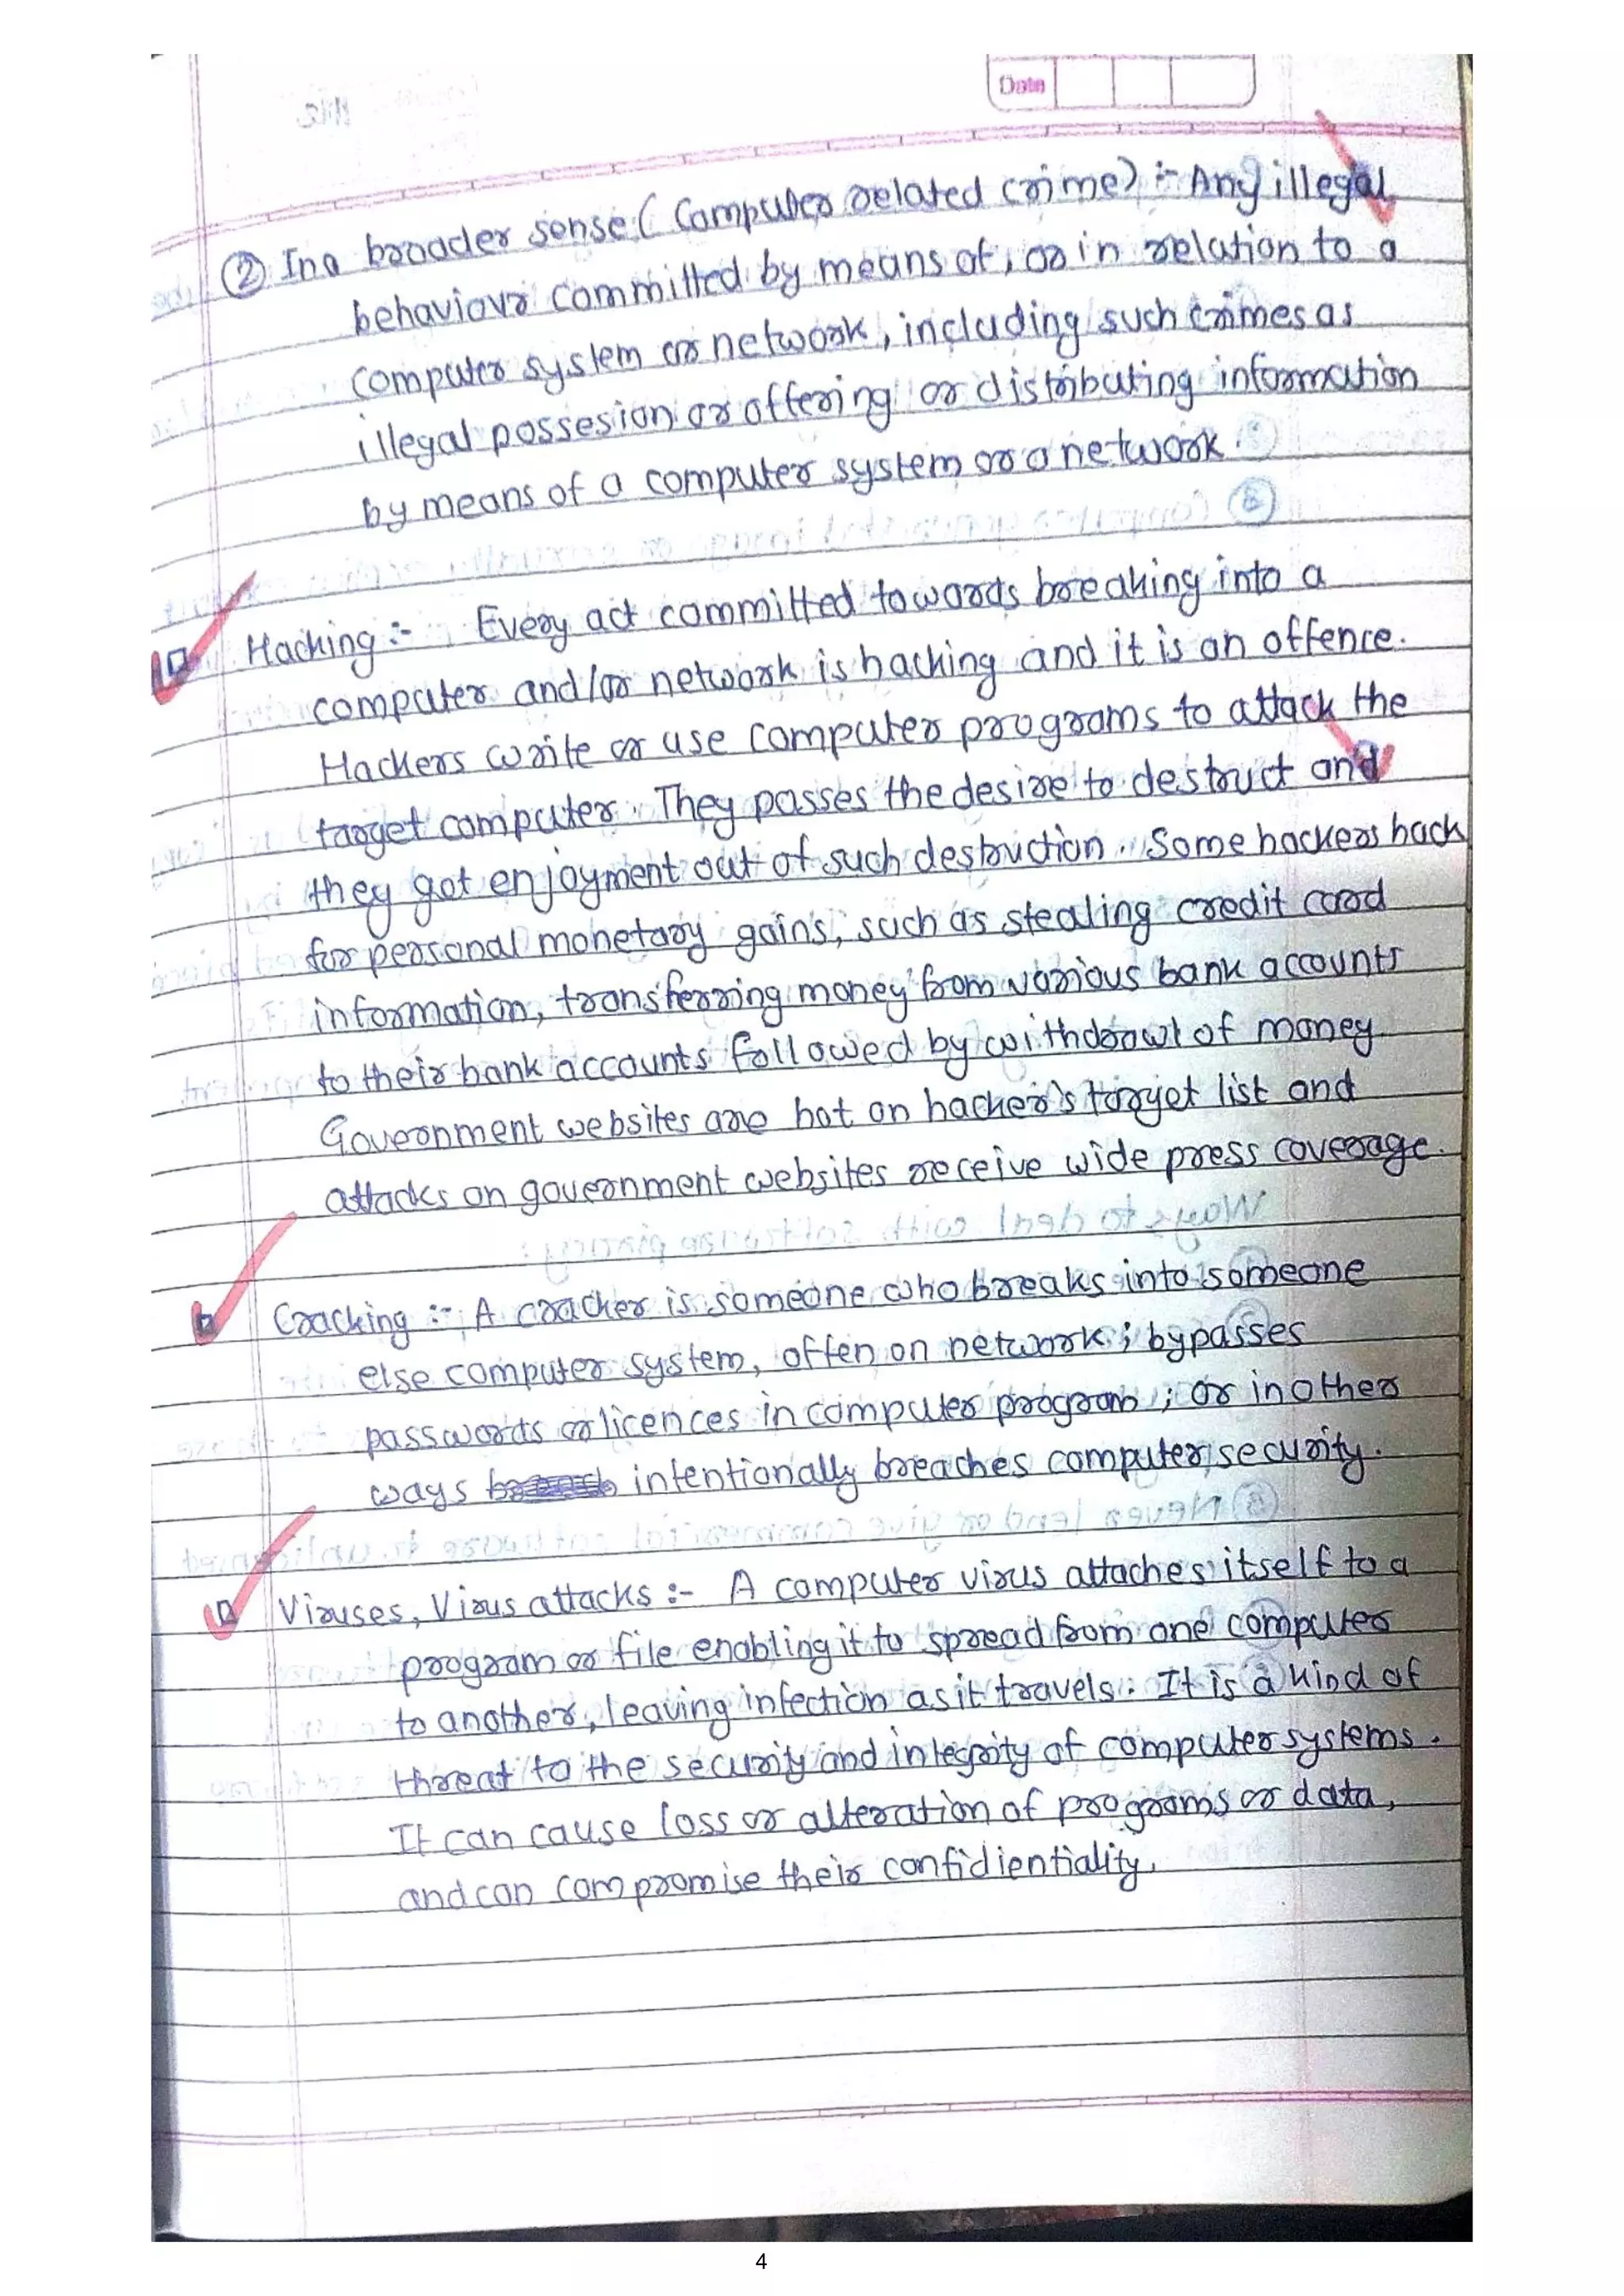 Date
② In a broader sense (Computer related crime) :- Any illegal
behaviour committed by means of, or in relation to a
computer system or network, including such crimes as
illegal possesion or offering or distributing information
by means of a computer system or a network.
Hacking :- Every act committed towards breaking into a
computer and/or network is hacking and it is an offence.
Hackers write or use computer programs to attack the
target computer. They passes the desire to destruct and
they got enjoyment out of such destruction. Some hackers hack
for personal monetary gains, such as stealing credit card
information, transferring money from various bank accounts
to their bank accounts followed by withdrawl of money
Government websites are hot on hacker's target list and
attacks on government websites receive wide press coverage.
Cracking :- A cracker is someone who breaks into someone
else computer system, often on network; bypasses
passwords or licences in computer program; or in other
ways intentionally breaches computer security.
Viruses, Virus attacks :- A computer virus attaches itself to a
program or file enabling it to spread from one computer
to another, leaving infection as it travels. It is a kind of
threat to the security and integrity of computer systems.
It can cause loss or alteration of programs or data,
and can compromise their confidientiality.
4